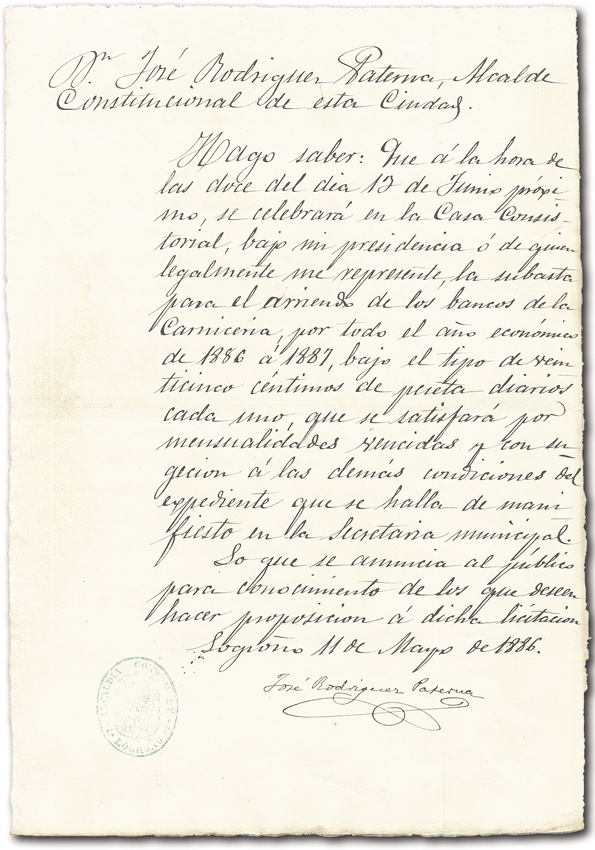 Dn José Rodriguez Paterna, Alcalde
Constitucional de esta Ciudad.
Hago saber: Que á la hora de
las doce del dia 12 de Junio próxi-
mo, se celebrará en la Casa Consis-
torial, bajo mi presidencia ó de quien
legalmente me represente, la subasta
para el arriendo de los bancos de la
Carniceria, por todo el año económico
de 1886 á 1887, bajo el tipo de vein
ticinco céntimos de peseta diarios
cada uno, que se satisfará por
mensualidades vencidas y con su
gecion á las demás condiciones del
expediente que se halla de mani
fiesto en la Secretaria municipal.
Lo que se anuncia al público
para conocimiento de los que deseen
hacer proposicion á dicha licitacion
Logroño 11 de Mayo de 1886.
José Rodriguez Paterna
ALCALDIA CONST
LOGROÑO